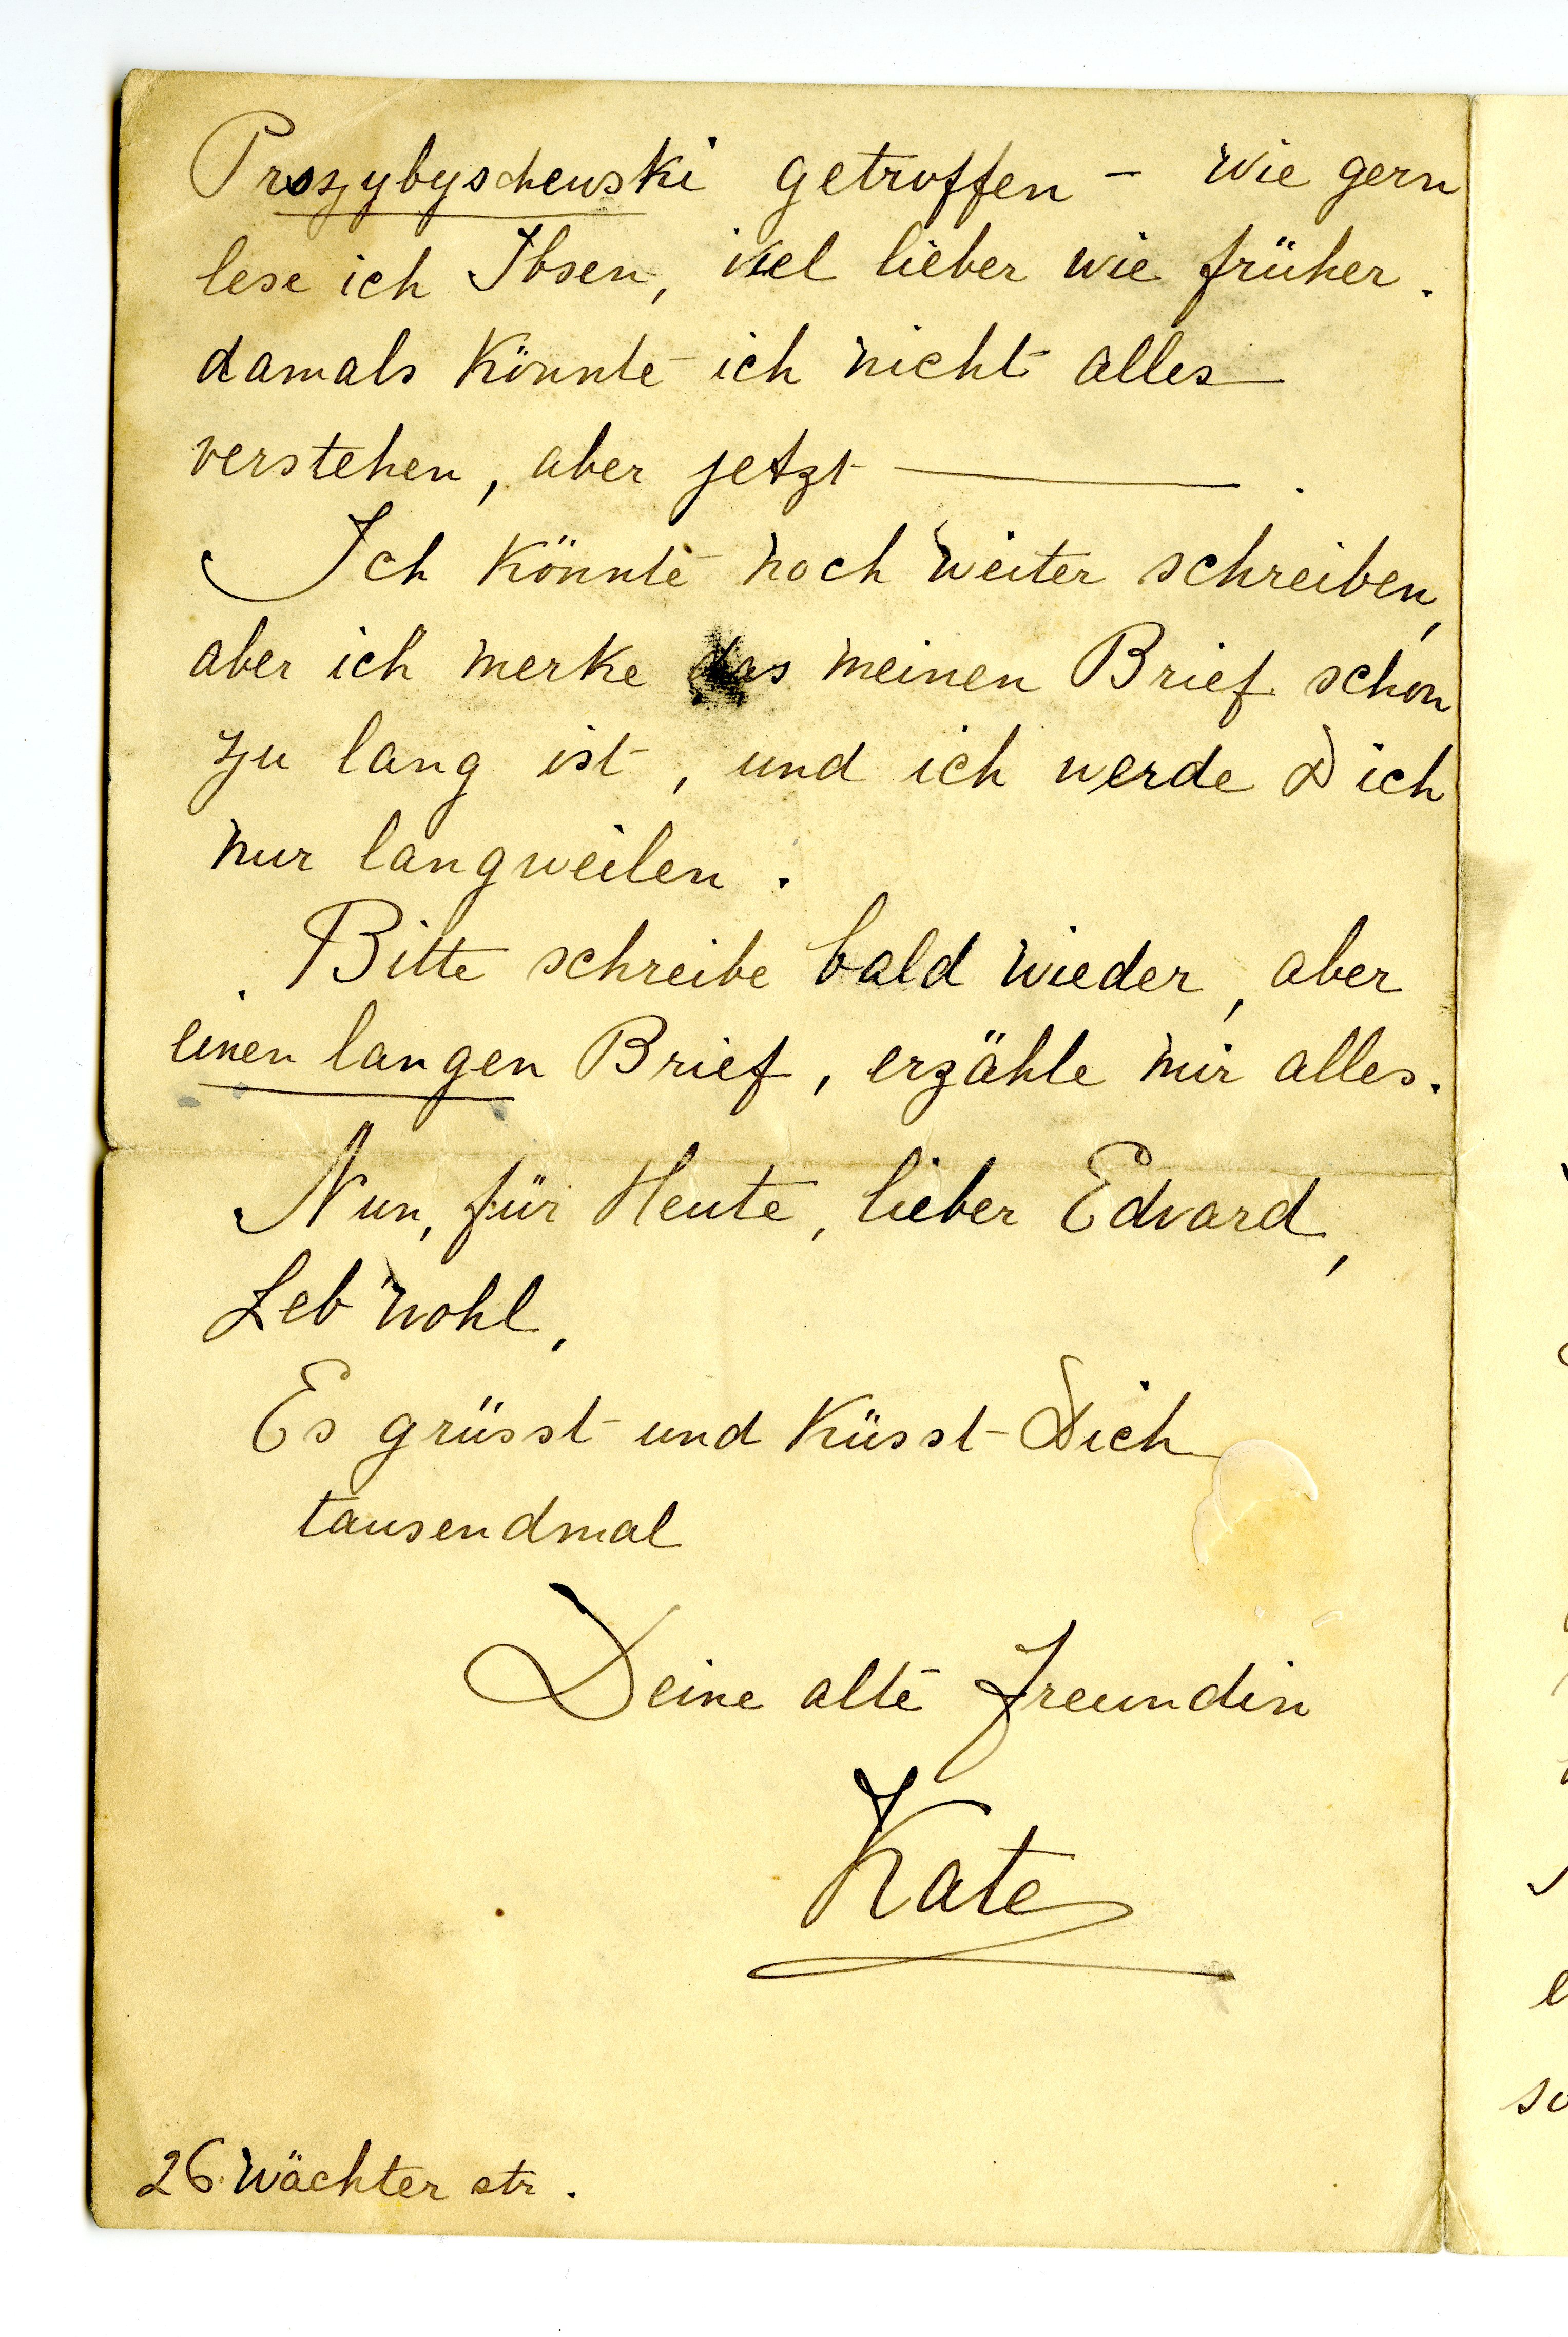 Proszybyschewski getroffen – wie gern
lese ich Ibsen, viel lieber wie früher.
damals könnte ich nicht alles
verstehen, aber jetzt — .
Ich könnte noch weiter schreiben,
aber ich merke das meinen Brief schon
zu lang ist, und ich werde Dich
nur langweilen.
Bitte schreibe bald wieder, aber
einen langen Brief, erzähle mir alles.
Nun, für Heute, lieber Edvard,
Leb wohl,
Es grüsst und küsst Dich
tausendmal
Deine alte Freundin
Kate
26 Wächter str.